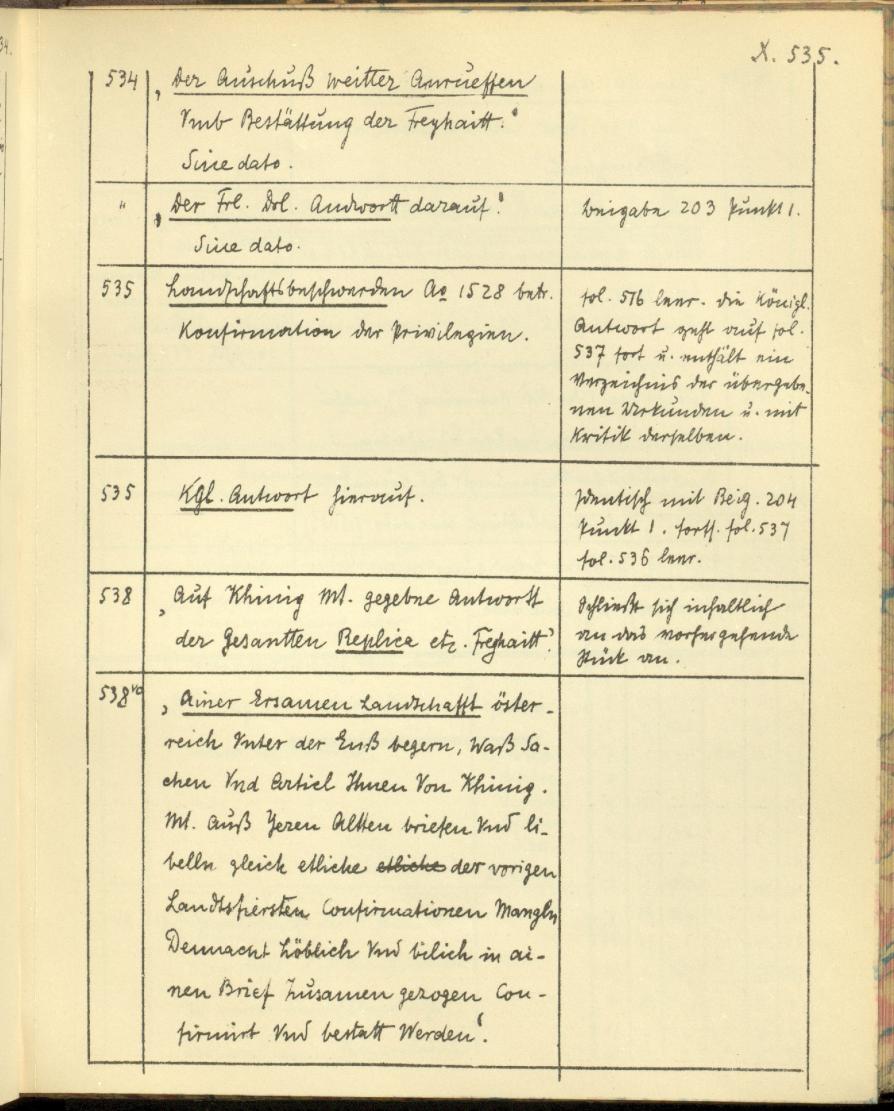 X. 535.
534 „Der Auschuß weitter Anrueffen
Vmb Bestättung der Freyhaitt.“
Sine dato.
" „Der Frl. Drl. Andwortt darauf.“ Beigabe 203 Punkt 1.
Sine dato.
535 Landschaftsbeschwerden Ao 1528 betr.
Konfirmation der Privilegien.
fol. 516 leer. die Königl.
Antwort geht auf fol.
537 fort u. enthält ein
Verzeichnis der übergebe-
nen Urkunden u. mit
Kritik derselben.
535 Kgl. Antwort hierauf.
Identisch mit Beig. 204
Punkt 1. forts. fol. 537
fol. 536 leer.
538 „Auf Khinig Mt. gegebne Antwortt
der Gesantten Replica etz. Freyhaitt“
Schließt sich inhaltlich
an das vorhergehende
Stück an.
538vo „Ainer Ersamen Landschafft öster-
reich Vnter der Enß begern, Waß Sa-
chen Vnd Articl Ihnen Von Khinig.
Mt. Auß Jeren Altten briefen Vnd li-
belln gleich etliche etliche der vorigen
Landtsfiersten Confirmationen Mangln
Dennacht Löblich Vnd bilich in ai-
nen Brief Zusamen gezogen Con-
firmirt Vnd bestatt Werden“.